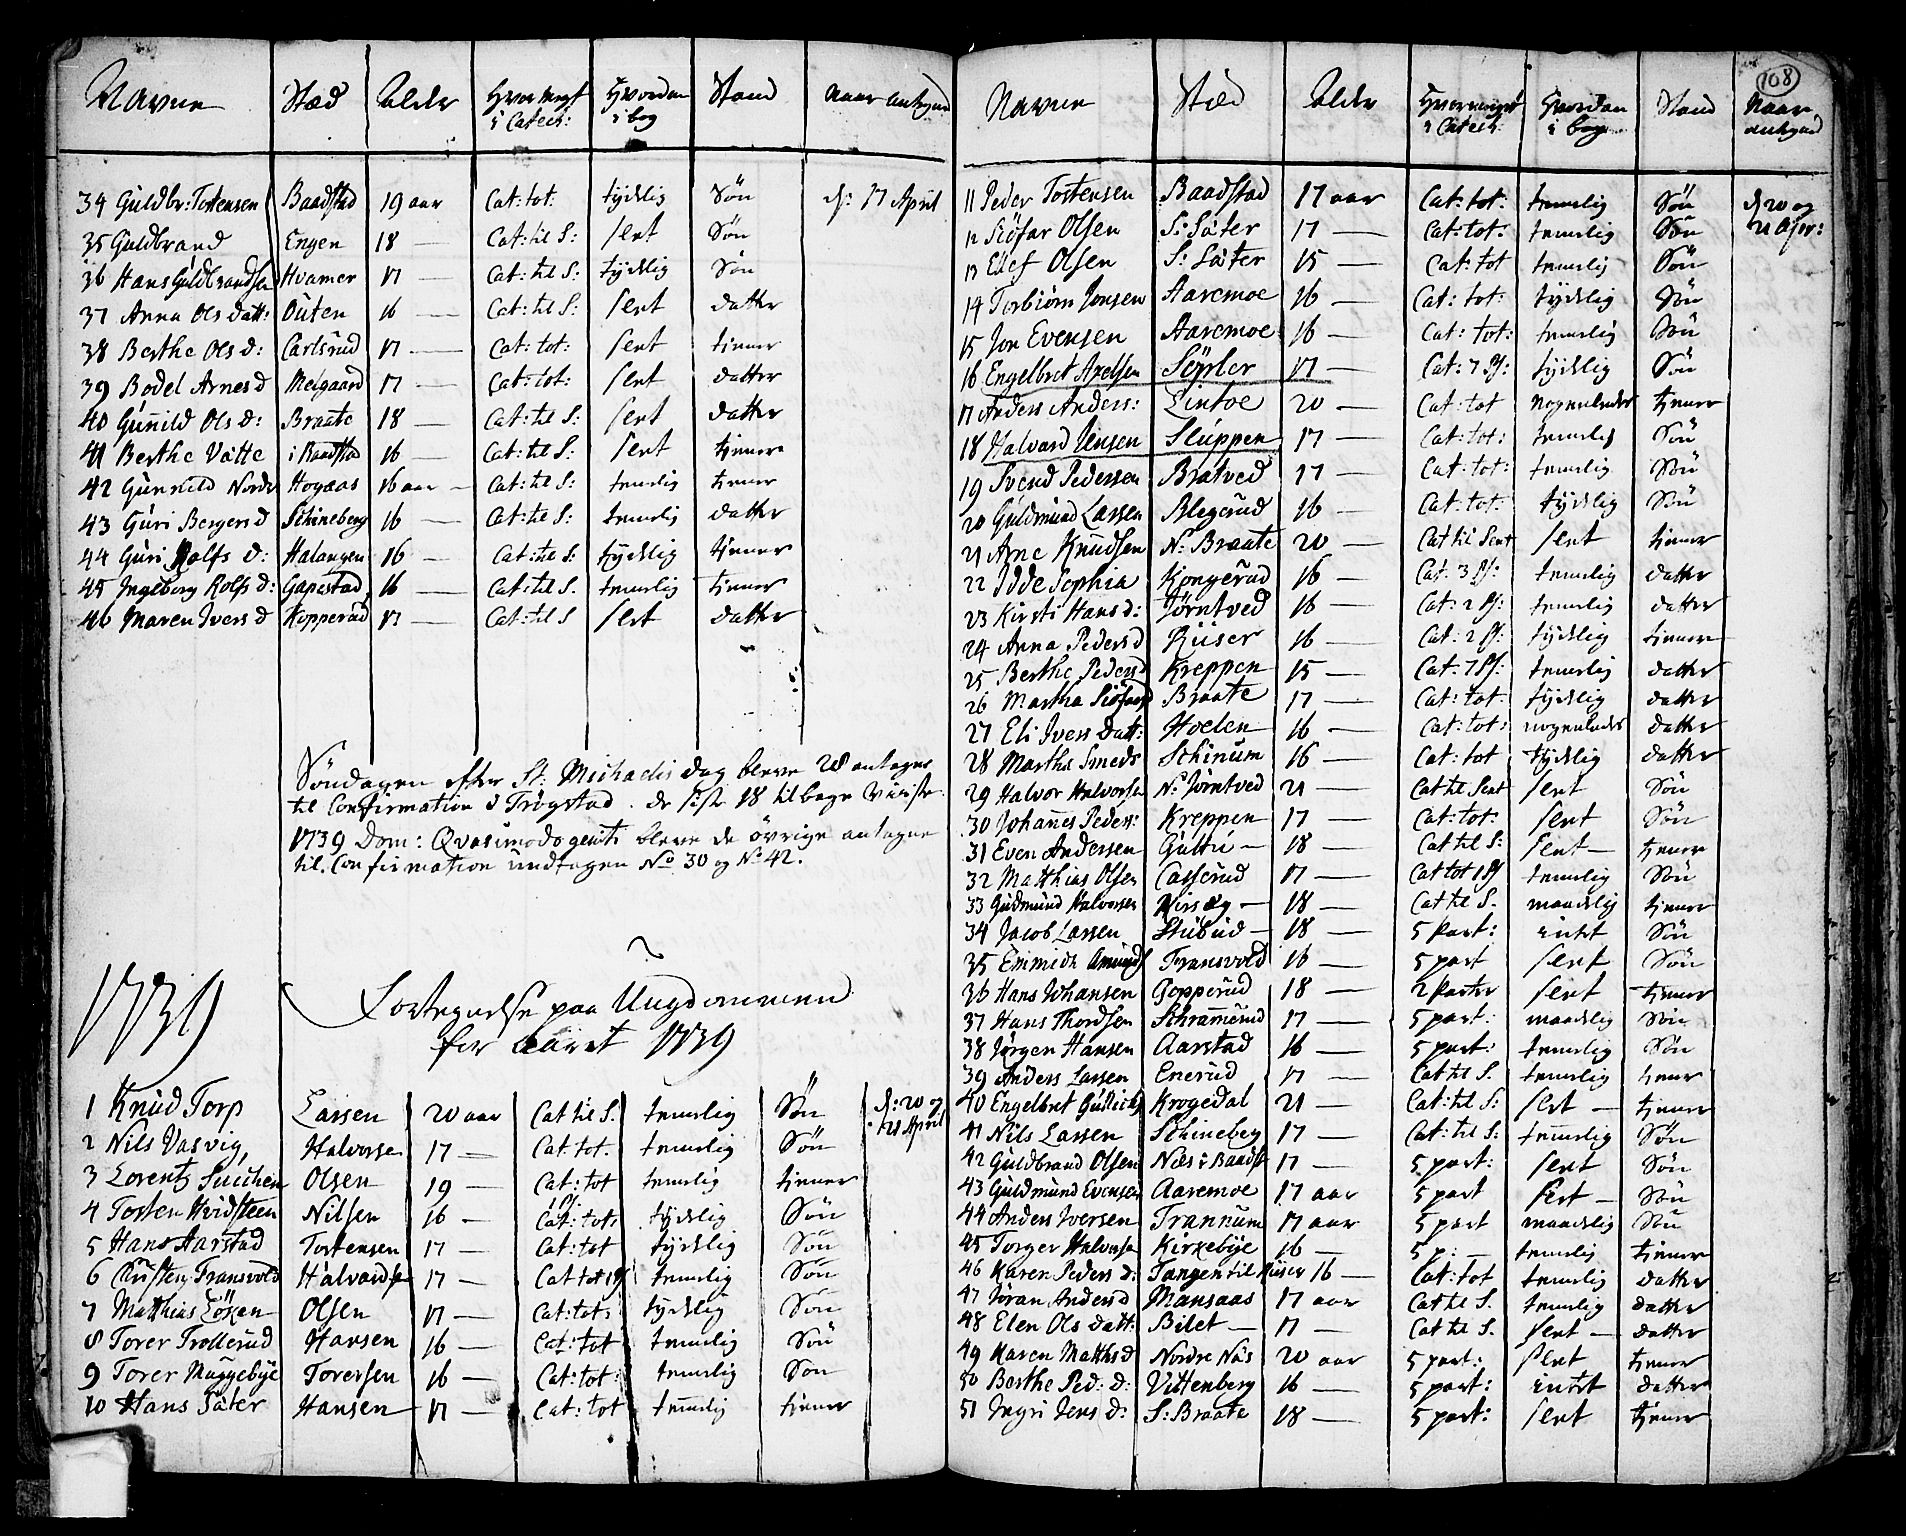 Navne Stæd Alder Hvor meget i Catech: Hvordan i bog Stand Naar antegned
34 Guldbr: Tostensen Baadstad 19 aar Cat: tot: tydelig Søn d: 17 April
35 Guldbrand Engen 18 — Cat: til S: slet Søn
36 Hans Guldbrandsen Hvamer 17 — Cat: til S: tydelig Søn
37 Anna Ols datt: Outen 16 — Cat: til S: slet datter
38 Berthe Ols d: Carlsrud 17 — Cat: tot: slet tiener
39 Bodel Arnes d Melgaard 17 — Cat: tot: slet datter
40 Gunnild Ols d: Braate 18 — Cat: til S: slet datter
41 Berthe Vatte i Baadstad 16 — Cat: til S: slet tiener
42 Gunnild Nordr Hogaas 16 aar — Cat: til S: temelig tiener
43 Guri Bergers d Schineberg 16 — Cat: til S: temelig datter
44 Guri Rolfs d: Halangen 16 — Cat: til S: tydelig tiener
45 Ingeborg Rolfs d: Gapestad 16 — Cat: til S. temelig tiener
46 Maren Ivers d Kopperud 17 — Cat: til S slet datter
Søndagen efter St: Michaelis dag bleve 28 antagne
til Confirmation i Trøgstad. de siste 18 tilbage viiste.
1739 Dom: Qvasimodogeniti bleve de øvrige antagne
til Confirmation undtagen No 30 og No 42.
1739
Fortegnelse paa Ungdommen
for Aaret 1739
1 Knud Torp Lassen 20 aar Cat til S. temelig Søn d: 20 og
2 Nils Vasvig, Halvorse 17 — Cat: tot. temelig Søn 21 April
3 Lorentz Suchen Olsen 19 — Cat: tot temelig tiener
4 Tosten Hvidsteen Nilsen 16 — Cat: tot: tydelig Søn
5 Hans Aarstad Tostensen 17 — Cat: tot tydelig Søn
6 Christen Fransvold Halvordse 17 — Cat tot 1 Ps temelig Søn
7 Matthias Löken Olsen 17 — Cat: tot: tydelig Søn
8 Torer Trollerud Hansen 16 — Cat: tot temelig Søn
9 Torer Muggebye Toresen 16 — Cat: tot: temelig Søn
10 Hans Säter Hansen 17 — Cat: tot temelig tiener
108
Navne Stæd Alder Hvor meget i Catech: Hvordan i bog Stand Naar antegned
11 Peder Tostensen Baadstad 17 aar Cat: tot: temelig Søn d: 20 og
12 Siöfar Olsen S: Säter 17 — Cat: tot: temelig Søn 21 Apr:
13 Ellef Olsen S: Säter 15 — Cat: tot temelig Søn
14 Torbiörn Jonsen Aaremoe 16 — Cat: tot: tydelig Søn
15 Jon Evensen Aaremoe 16 — Cat: tot: temelig Søn
16 Engelbret Axelsen Seyrler 17 — Cat: 7 Ps: tydelig Søn
17 Anders Anders: Lintoe 20 — Cat: tot nogenledes tiener
18 Halvard Jensen Sluppen 17 — Cat: tot: temelig Søn
19 Svend Pedersen Bratved 17 — Cat: tot: temelig Søn
20 Guldmund Lassen Blegerud 16 — Cat: tot: tydelig Søn
21 Arne Knudsen N: Braate 20 — Cat til Sent slet tiener
22 Idde Sophia Kongerud 16 — Cat: 3 Ps: temelig datter
23 Kirsti Hans d: Jørntved 16 — Cat: 2 Ps: temelig datter
24 Anna Peders d Kiiser 16 — Cat: 2 Ps: tydelig tiener
25 Berthe Peders d Kreppen 15 — Cat: 7 Ps: temelig datter
26 Martha Siöfars d Braate 17 — Cat: tot tydelig datter
27 Eli Ivers datt: Hoelen 16 — Cat: tot: nogenledes datter
28 Marthe Smeds Schinum 16 — Cat: tot tydelig datter
29 Halvor Halvorsen N: Jørntved 21 — Cat til Sent slet Søn
30 Johannes Peders: Kreppen 17 — Cat: tot: slet Søn
31 Even Andersen Gultu — 18 — Cat til S: slet — tiener
32 Matthias Olsen Casserud 17 — Cat tot 1 Ps temelig Søn
33 Gudmund Halvorsen Kirsæg — 18 — Cat til S. maadelig tiener
34 Jacob Lassen Stubud — 18 — 5 Part: intet Søn
35 Emmich Amunds Fransvold 16 — 5 part slet Søn
36 Hans Johansen Gopperud 18 — 2 Parter slet tiener
37 Hans Thordsen Schramerud 17 — 5 part: maadelig Søn
38 Jørgen Hansen Aarstad 16 — 5 part: temelig Søn
39 Anders Lassen Enerud 17 — Cat til S. temelig tiener
40 Engelbret Gullichs Krogedal 21 — Cat: til S: slet — tiener
41 Nils Lassen Schineberg 17 — Cat: til S: temelig Søn
42 Guldbrand Olsen Næs i Baadst 17 — 5 part: slet Søn
43 Guldmund Evensen Aaremoe 17 aar 5 part slet — Søn
44 Anders Iversen Trannum 17 aar 5 part maadelig Søn
45 Torger Halvorse Kirkebye 16 — 5 p: — temelig tiener
46 Karen Peders d: Tangen til Kiiser 16 — Cat: tot temelig datter
47 Jøran Anders d Mansaas 17 aar Cat til S. temelig datter
48 Elen Ols datt: Bilet — 17 — Cat til S. slet — datter
49 Karen Matths d Nordre Näs 20 aar 5 part: slet tiener
50 Berthe Ped: d: Vittenberg 16 — 5 part: intet datter
51 Ingri Jens d: S: Braate 18 — 5 part: slet tiener